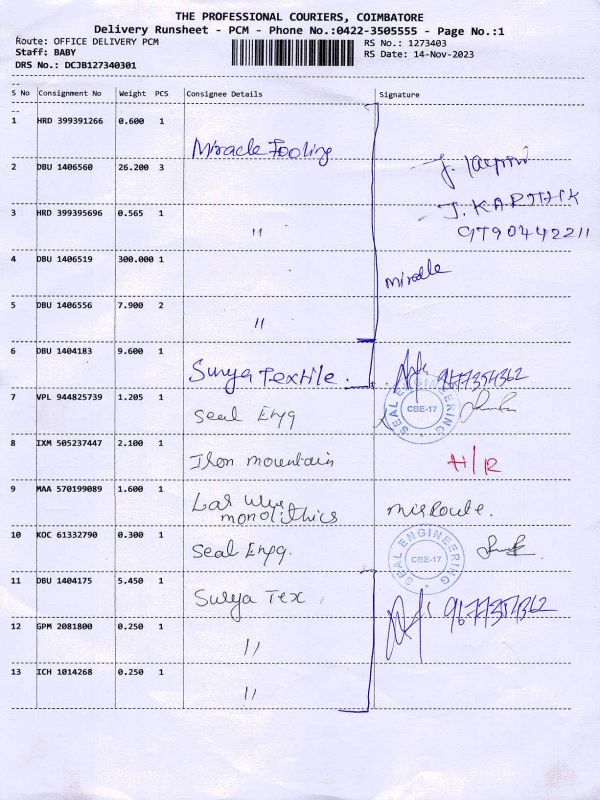 THE PROFESSIONAL COURIERS, COIMBATORE
Delivery Runsheet - PCM - Phone No.:0422-3505555 - Page No.:1
Route: OFFICE DELIVERY PCM RS No.: 1273403
Staff: BABY RS Date: 14-Nov-2023
DRS No.: DCJB127340301
S No Consignment No Weight PCS Consignee Details Signature
1 HRD 399391266 0.600 1 Miracle Tooling
2 DBU 1406560 26.200 3
3 HRD 399395696 0.565 1 "
J. KARTHIK
9790442211
4 DBU 1406519 300.000 1 miracle
5 DBU 1406556 7.900 2 "
6 DBU 1404183 9.600 1 Surya Textile. 9677354362
7 VPL 944825739 1.205 1 Seal Engg SEAL ENGINEERING CBE-17
8 IXM 505237447 2.100 1 Iron mountain H/R
9 MAA 570199089 1.600 1 monolithics misRoute.
10 KOC 61332790 0.300 1 Seal Engg. SEAL ENGINEERING CBE-17
11 DBU 1404175 5.450 1 Surya Tex 9677354362
12 GPM 2081800 0.250 1 "
13 ICH 1014268 0.250 1 "